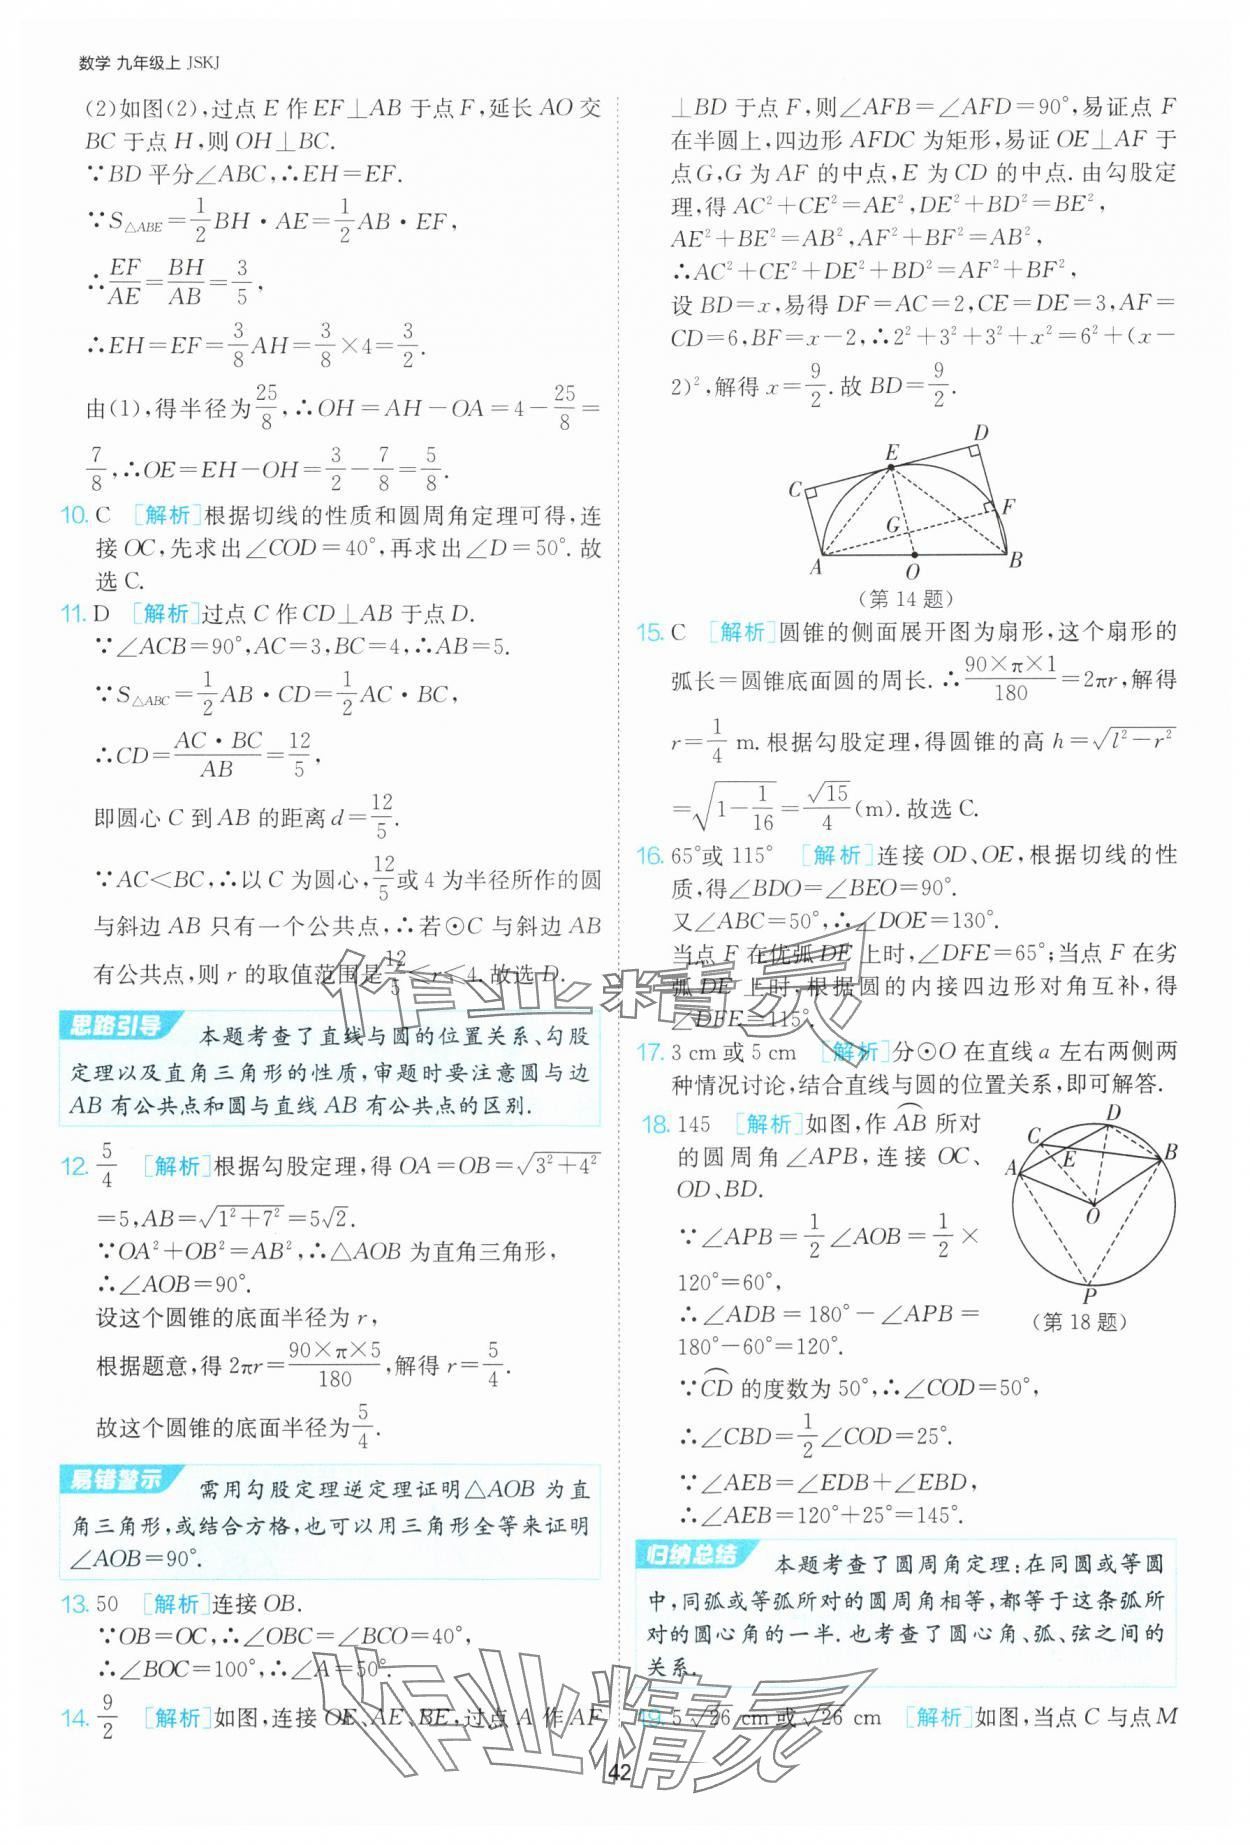 数学 九年级上 JSKJ
(2)如图(2),过点 E 作 EF⊥AB 于点 F,延长 AO 交
BC 于点 H,则 OH⊥BC.
∵BD 平分∠ABC,∴EH=EF.
∵S△ABE=1/2BH·AE=1/2AB·EF,
∴EF/AE=BH/AB=3/5,
∴EH=EF=3/8AH=3/8×4=3/2.
由(1),得半径为25/8,∴OH=AH-OA=4-25/8=
7/8,∴OE=EH-OH=3/2-7/8=5/8.
10. C [解析]根据切线的性质和圆周角定理可得,连
接 OC,先求出∠COD=40°,再求出∠D=50°.故
选 C.
11. D [解析]过点 C 作 CD⊥AB 于点 D.
∵∠ACB=90°,AC=3,BC=4,∴AB=5.
∵S△ABC=1/2AB·CD=1/2AC·BC,
∴CD=AC·BC/AB=12/5,
即圆心 C 到 AB 的距离 d=12/5.
∵AC<BC,∴以 C 为圆心,12/5或 4 为半径所作的圆
与斜边 AB 只有一个公共点,∴若⊙C 与斜边 AB
有公共点,则 r 的取值范围是12/5≤r≤4.故选 D.
思路引导 本题考查了直线与圆的位置关系、勾股
定理以及直角三角形的性质,审题时要注意圆与边
AB 有公共点和圆与直线 AB 有公共点的区别.
12. 5/4 [解析]根据勾股定理,得 OA=OB=√(3²+4²)
=5,AB=√(1²+7²)=5√2.
∵OA²+OB²=AB²,∴△AOB 为直角三角形,
∴∠AOB=90°.
设这个圆锥的底面半径为 r,
根据题意,得 2πr=90×π×5/180,解得 r=5/4.
故这个圆锥的底面半径为5/4.
易错警示 需用勾股定理逆定理证明△AOB 为直
角三角形,或结合方格,也可以用三角形全等来证明
∠AOB=90°.
13. 50 [解析]连接 OB.
∵OB=OC,∴∠OBC=∠BCO=40°,
∴∠BOC=100°,∴∠A=50°.
14. 9/2 [解析]如图,连接 OE、AE、BE,过点 A 作 AF
⊥BD 于点 F,则∠AFB=∠AFD=90°,易证点 F
在半圆上,四边形 AFDC 为矩形,易证 OE⊥AF 于
点 G,G 为 AF 的中点,E 为 CD 的中点.由勾股定
理,得 AC²+CE²=AE²,DE²+BD²=BE²,
AE²+BE²=AB²,AF²+BF²=AB²,
∴AC²+CE²+DE²+BD²=AF²+BF²,
设 BD=x,易得 DF=AC=2,CE=DE=3,AF=
CD=6,BF=x-2,∴2²+3²+3²+x²=6²+(x-
2)²,解得 x=9/2.故 BD=9/2.
D
E
C
F
G
A
O
B
(第 14 题)
15. C [解析]圆锥的侧面展开图为扇形,这个扇形的
弧长=圆锥底面圆的周长.∴90×π×1/180=2πr,解得
r=1/4 m.根据勾股定理,得圆锥的高 h=√(l²-r²)
=√(1-1/16)=√15/4(m).故选 C.
16. 65°或 115° [解析]连接 OD、OE,根据切线的性
质,得∠BDO=∠BEO=90°.
又∠ABC=50°,∴∠DOE=130°.
当点 F 在优弧 DE 上时,∠DFE=65°;当点 F 在劣
弧 DE 上时,根据圆的内接四边形对角互补,得
∠DFE=115°.
17. 3 cm 或 5 cm [解析]分⊙O 在直线 a 左右两侧两
种情况讨论,结合直线与圆的位置关系,即可解答.
18. 145 [解析]如图,作⌒AB 所对
的圆周角∠APB,连接 OC、
OD、BD.
∵∠APB=1/2∠AOB=1/2×
120°=60°,
∴∠ADB=180°-∠APB=
180°-60°=120°.
∵⌒CD 的度数为 50°,∴∠COD=50°,
∴∠CBD=1/2∠COD=25°.
∵∠AEB=∠EDB+∠EBD,
∴∠AEB=120°+25°=145°.
D
C
E
B
A
O
P
(第 18 题)
归纳总结 本题考查了圆周角定理:在同圆或等圆
中,同弧或等弧所对的圆周角相等,都等于这条弧所
对的圆心角的一半.也考查了圆心角、弧、弦之间的
关系.
19. 5√26 cm 或√26 cm [解析]如图,当点 C 与点 M
42
作业精灵
作业精灵